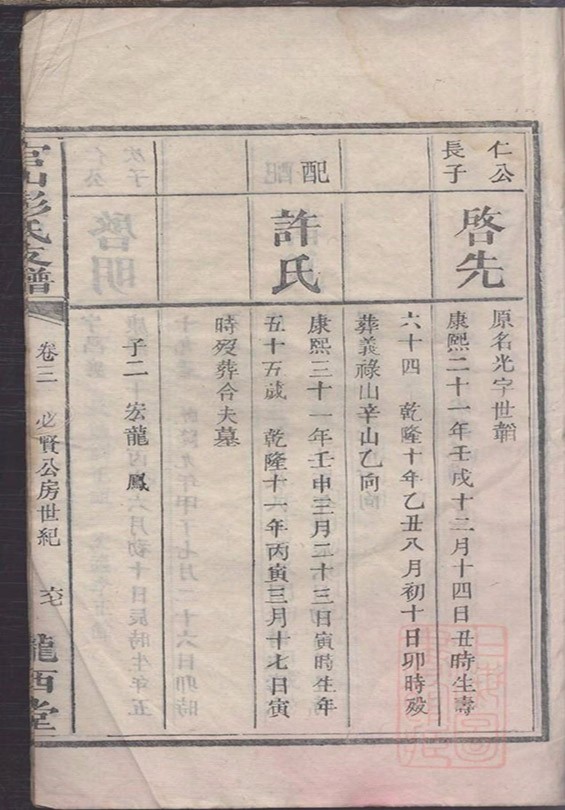 仁公
長子
啓先
原名光字世韜
康熙二十一年壬戌十二月十四日丑時生壽
六十四　乾隆十年乙丑八月初十日卯時殁
葬義祿山辛山乙向
配
許氏
康熙三十一年壬申三月二十三日寅時生年
五十五歲　乾隆十一年丙寅三月十七日寅
時殁葬合夫墓
子二　宏龍　鳳
官山彭氏支譜
卷三　必賢公房世紀
隴西堂